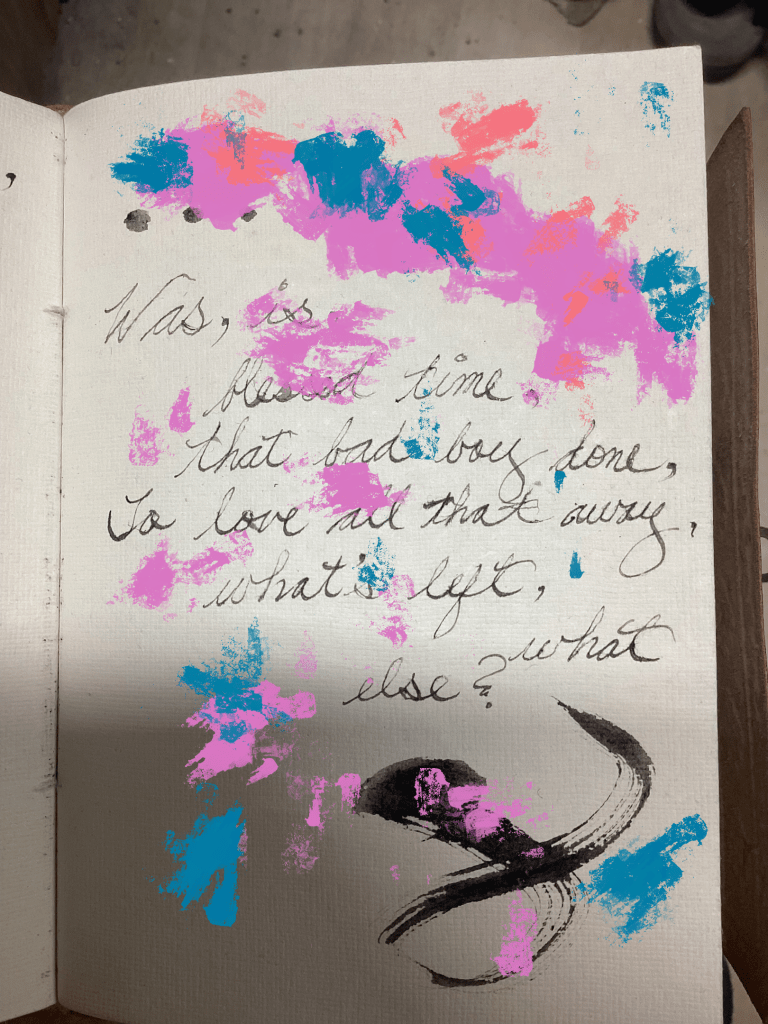 Was, is
blessed time,
that bad boy done,
To love all that away,
what's left,
what
else?